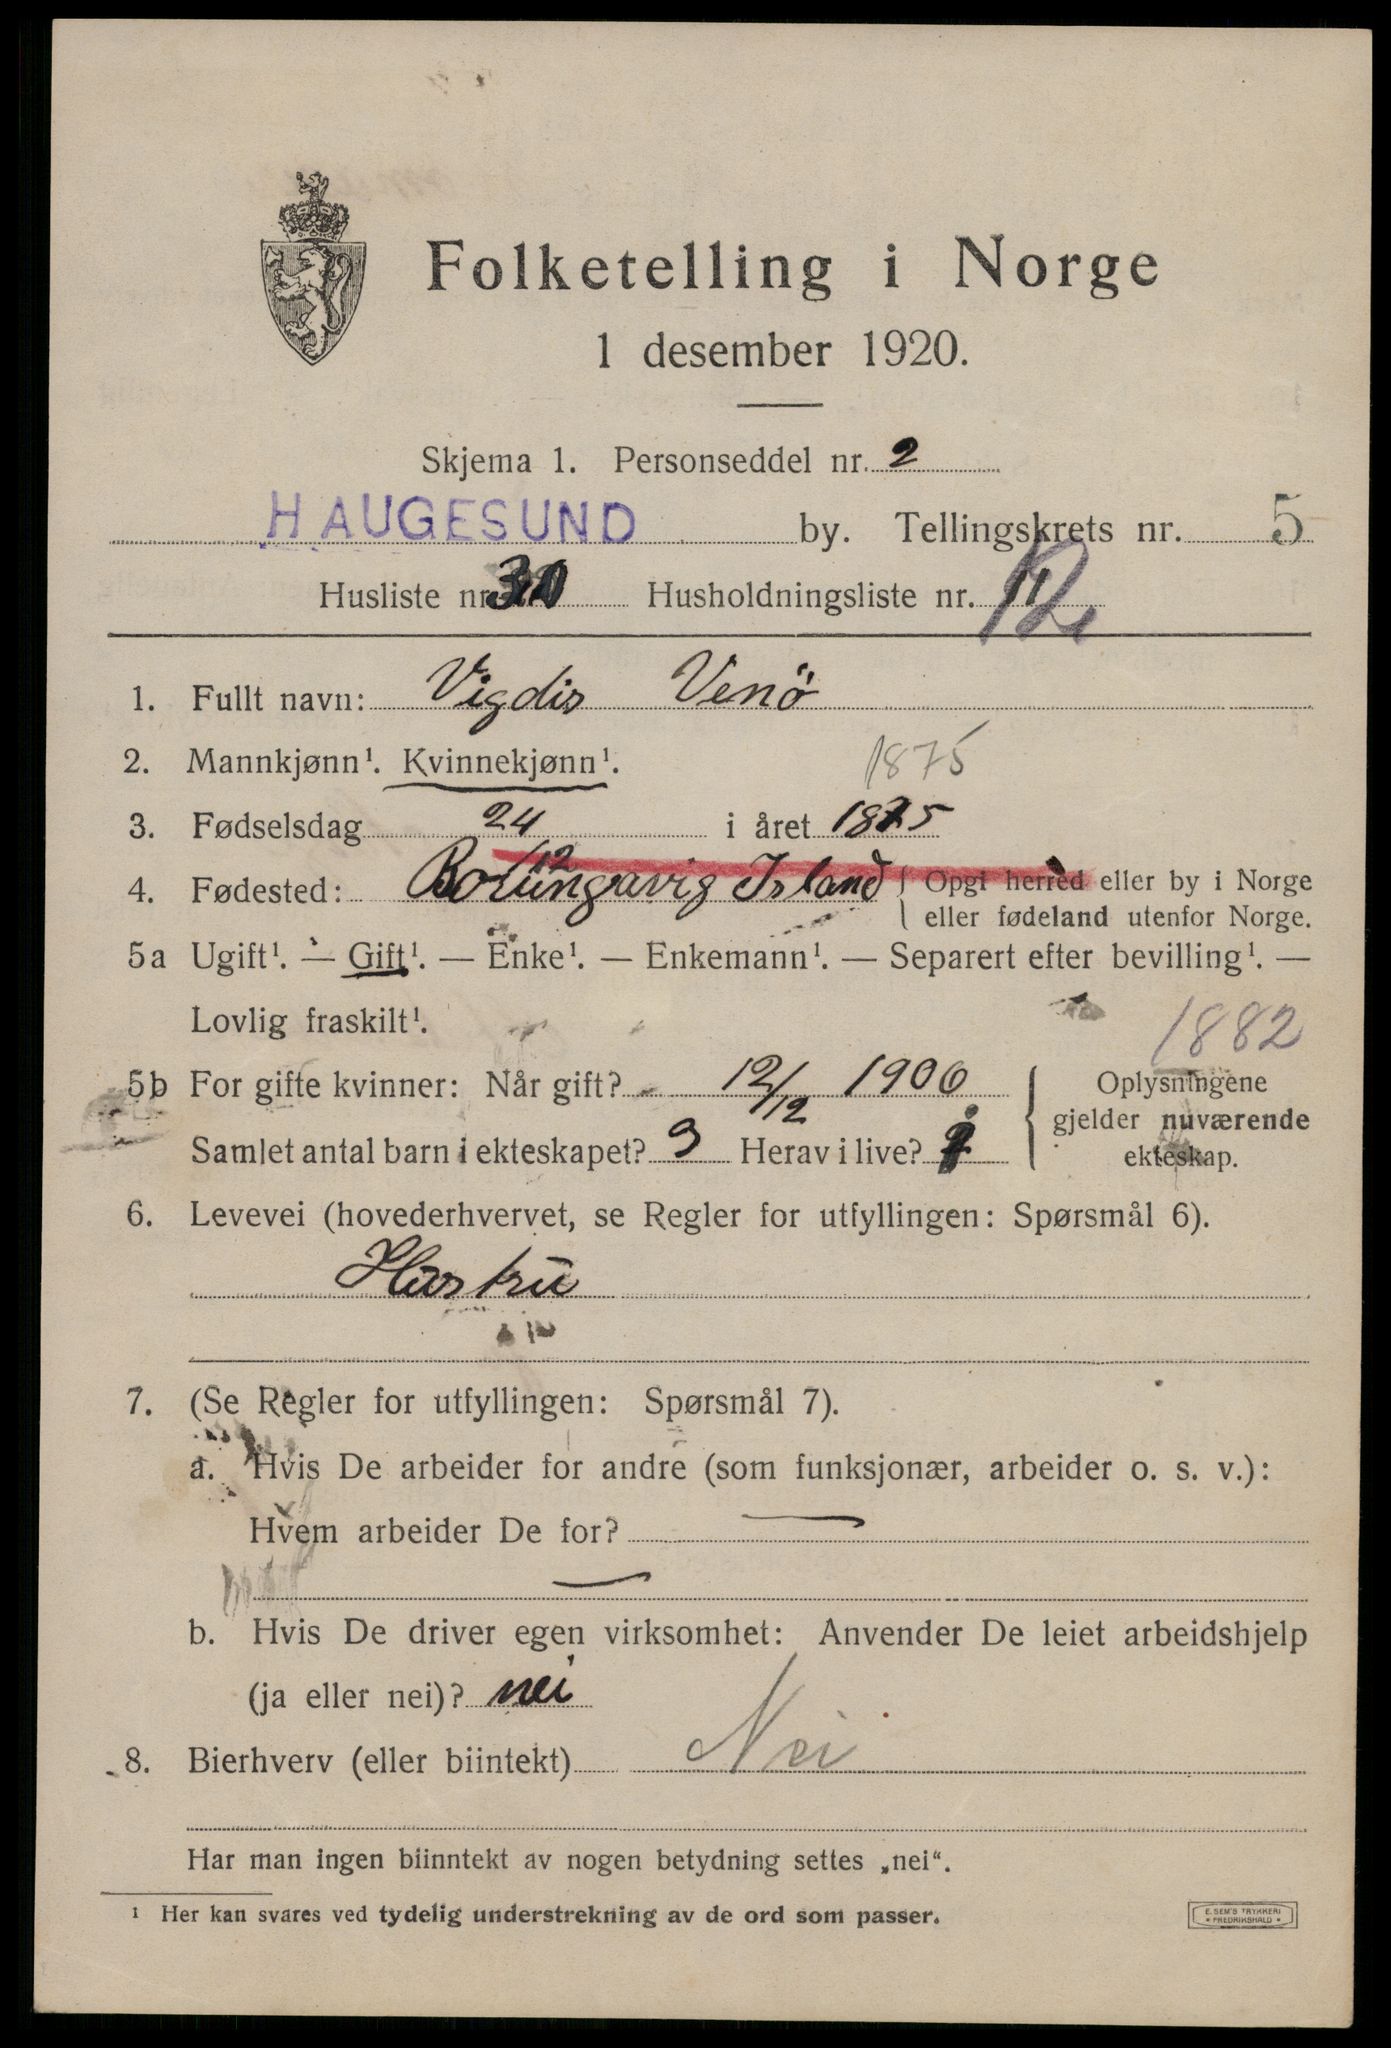 Folketelling i Norge
1 desember 1920.
Skjema 1. Personseddel nr. 2
HAUGESUND by. Tellingskrets nr. 5
Husliste nr. 30 Husholdningsliste nr. 11 12
1. Fullt navn: Vigdis Venö
2. Mannkjønn¹. Kvinnekjønn¹. 1875
3. Fødselsdag 24/12 i året 1875
4. Fødested: Bolungavig Island { Opgi herred eller by i Norge
eller fødeland utenfor Norge.
5a Ugift¹. — Gift¹. — Enke¹. — Enkemann¹. — Separert efter bevilling¹. —
Lovlig fraskilt¹.
1882
5b For gifte kvinner: Når gift? 12/12 1906 { Oplysningene
gjelder nuværende
ekteskap.
Samlet antal barn i ekteskapet? 3 Herav i live?
6. Levevei (hovederhvervet, se Regler for utfyllingen: Spørsmål 6).
Hustru
7. (Se Regler for utfyllingen: Spørsmål 7).
a. Hvis De arbeider for andre (som funksjonær, arbeider o. s. v.):
Hvem arbeider De for? —
—
b. Hvis De driver egen virksomhet: Anvender De leiet arbeidshjelp
(ja eller nei)? nei
8. Bierhverv (eller biintekt) Nei
Har man ingen biinntekt av nogen betydning settes „nei“.
¹ Her kan svares ved tydelig understrekning av de ord som passer.
E. SEM'S TRYKKERI
• FREDRIKSHALD •